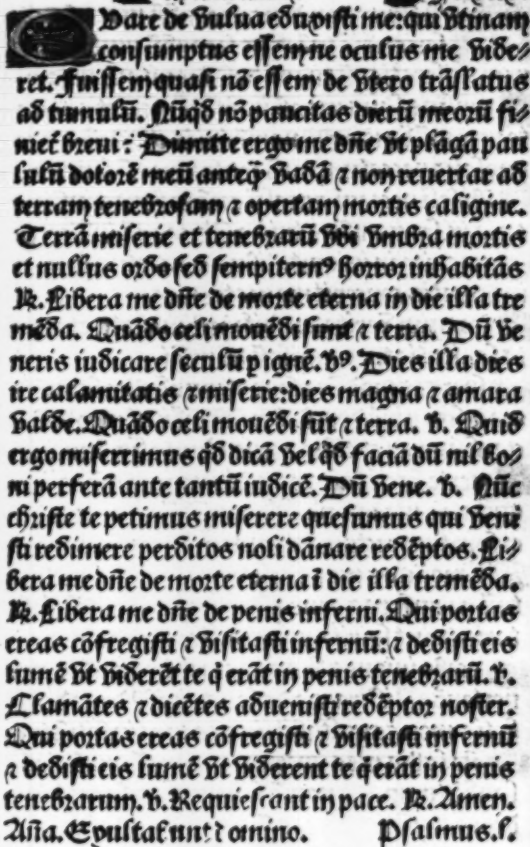 Quare de vulua eduxisti me: qui vtinam
consumptus essem ne oculus me vide⸗
ret. Fuissem quasi nō essem de vtero trāslatus
ad tumulū. Nūqd nō paucitas dierū meorū fi⸗
niet̄ breui: Dimitte ergo me dn̄e vt plāgā pau
lulū dolorē meū anteq̄ȝ vadā ⁊ non reuertar ad
terram tenebrosam ⁊ opertam mortis caligine.
Terrā miserie et tenebrarū vbi vmbra mortis
et nullus ordo sed sempiternꝰ horror inhabitās
℟. Libera me dn̄e de morte eterna in die illa tre
mēda. Quādo celi mouēdi sunt ⁊ terra. Dū ve
neris iudicare seculū p ignē. vꝰ. Dies illa dies
ire calamitatis ⁊ miserie: dies magna ⁊ amara
valde. Quādo celi mouēdi sūt ⁊ terra. v. Quid
ergo miserrimus qd̄ dicā vel qd̄ faciā dū nil bo⸗
ni perferā ante tantū iudicē. Dū vene. v. Nūc
christe te petimus miserere quesumus qui veni
sti redimere perditos noli dānare redēptos. Li⸗
bera me dn̄e de morte eterna ī die illa tremēda.
℟. Libera me dn̄e de penis inferni. Qui portas
ereas cōfregisti ⁊ visitasti infernū: ⁊ dedisti eis
lumē vt viderēt te q̄ erāt in penis tenebrarū. v.
Clamātes ⁊ dicētes aduenisti redēptor noster.
Qui portas ereas cōfregisti ⁊ visitasti infernū
⁊ dedisti eis lumē vt viderent te q̄ erāt in penis
tenebrarum. v. Requiescant in pace. ℟. Amen.
Aña. Exultabunt domino. Psalmus. l.